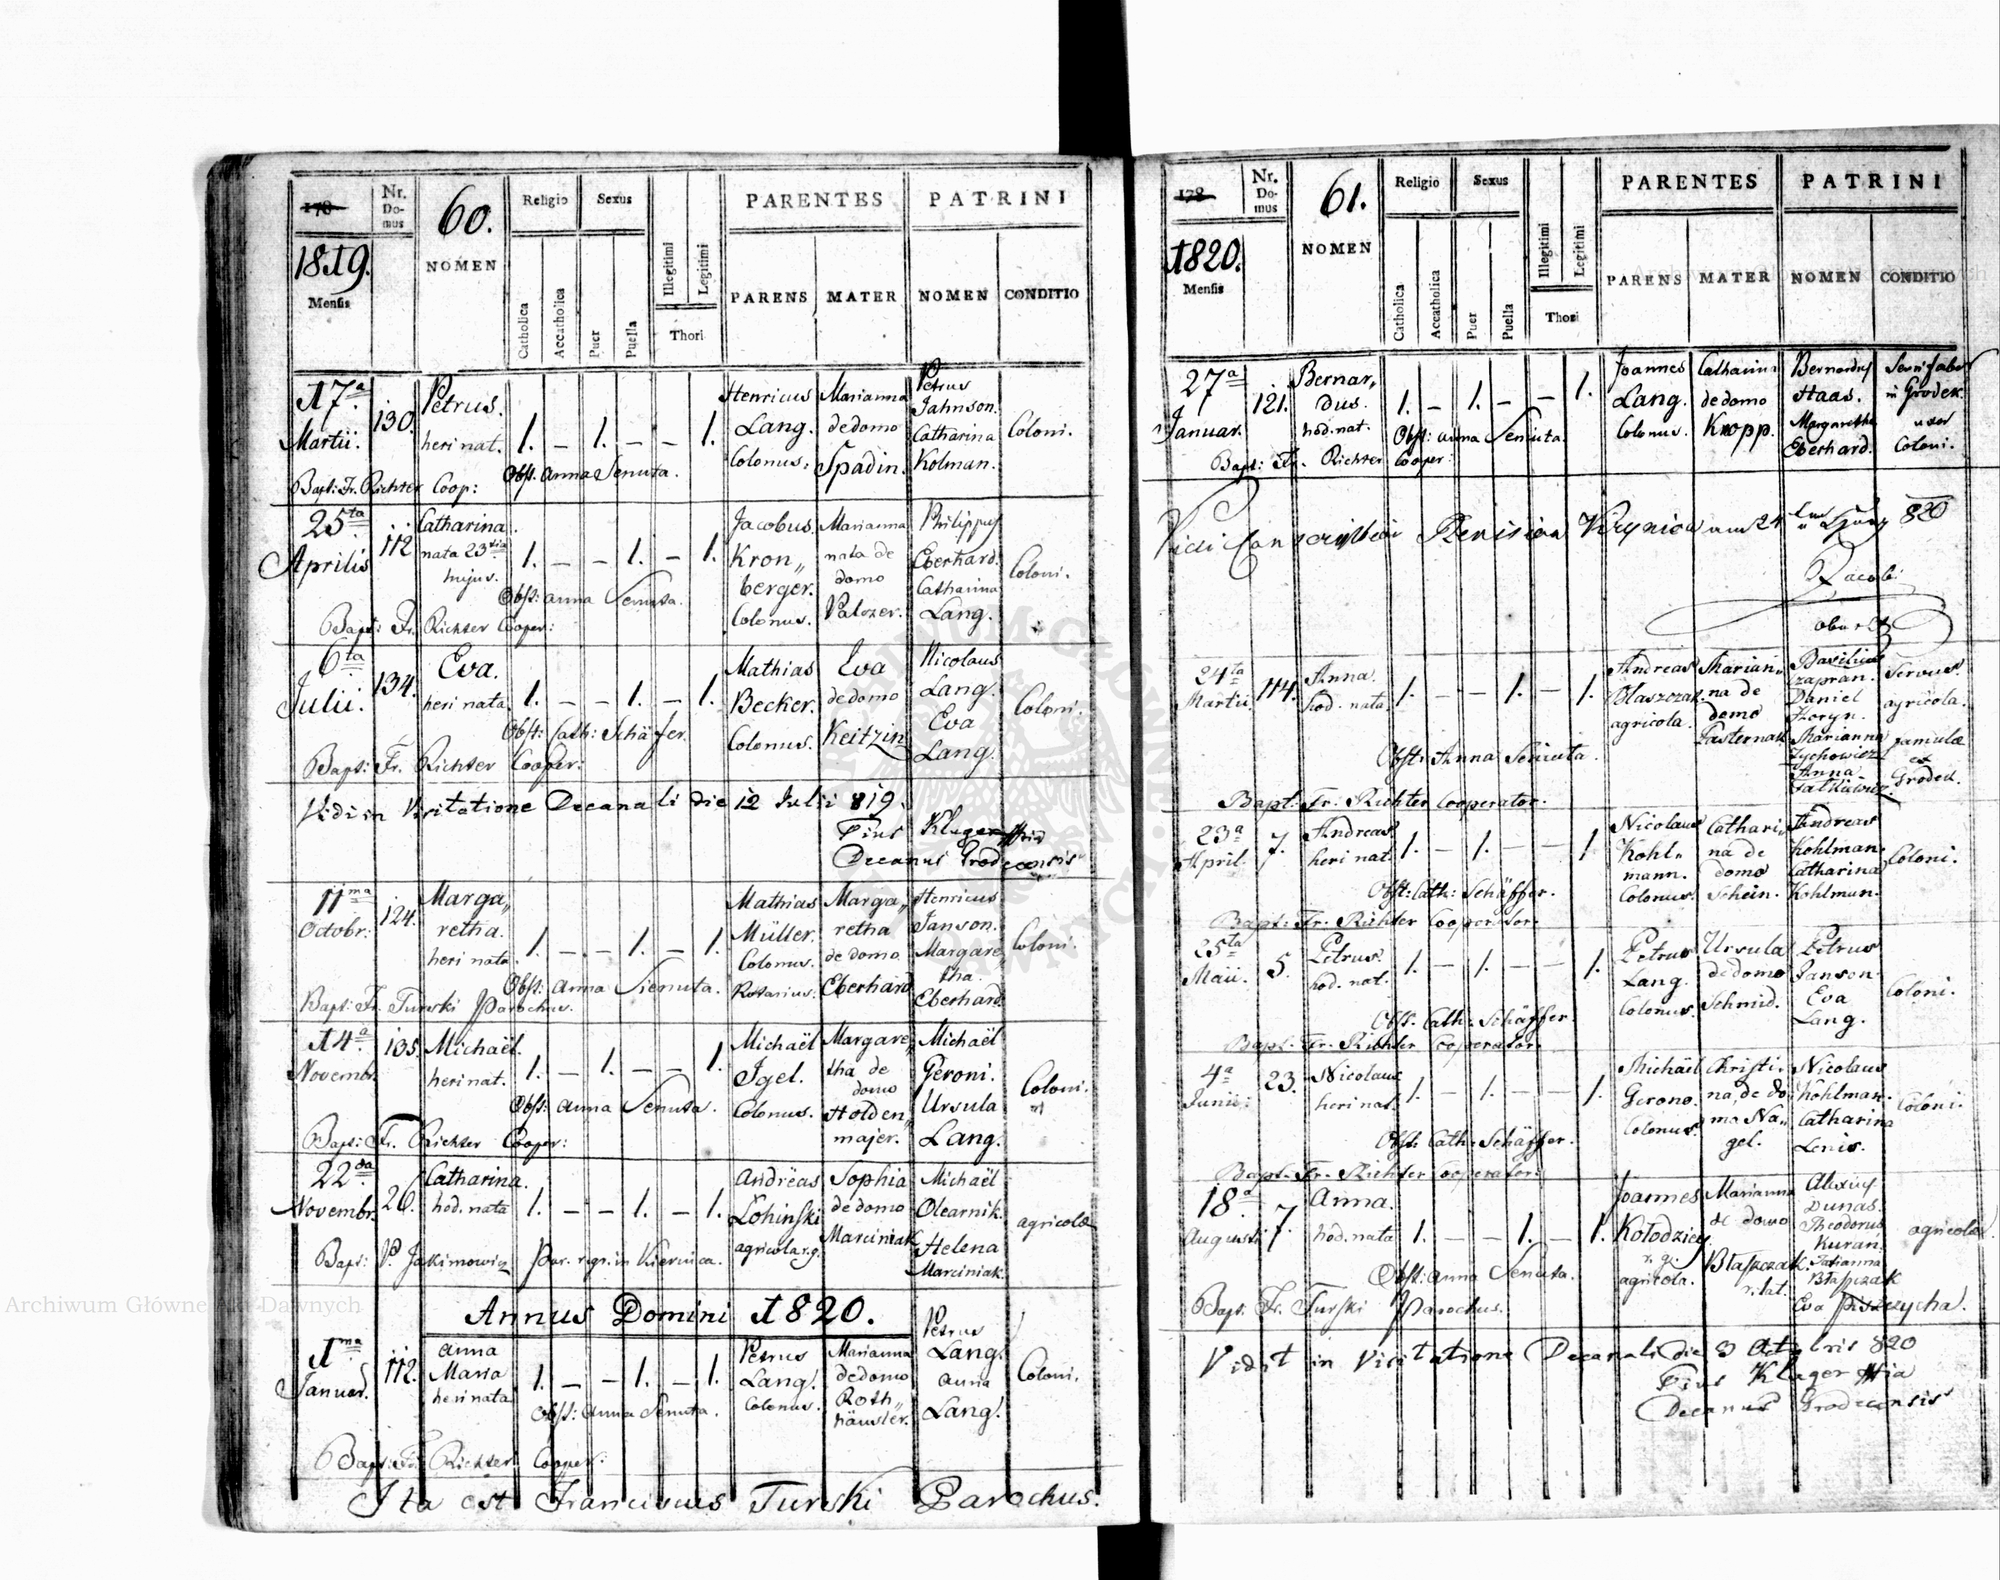 178
Nr. Domus
60.
Religio
Sexus
PARENTES
PATRINI
1819.
Mensis
NOMEN
Catholica
Accatholica
Puer
Puella
Illegitimi
Legitimi
Thori
PARENS
MATER
NOMEN
CONDITIO
17a Martii.
130.
Petrus.
heri nat.
1. – 1. – – 1.
Henricus Lang. Colonus.
Marianna de domo Spadin.
Petrus Jahnson. Catharina Kolman.
Coloni.
Obst. Anna Senuta.
Bapt: Fr. Richter Coop:
25ta Aprilis
112
Catharina.
nata 23tia hujus.
1. – – 1. – 1.
Jacobus Kron„ berger. Colonus.
Marianna nata de domo
Philippus Eberhard. Catharina Lang.
Coloni.
Obst: Anna Senuta.
Bapt: Fr. Richter Cooper:
6ta Julii.
134.
Eva.
heri nata.
1. – – 1. – 1.
Mathias Becker. Colonus.
Eva de domo Keitzin
Nicolaus Lang. Eva Lang.
Coloni.
Obst: Cath: Schäfer.
Bapt: Fr. Richter Cooper:
Vidi in Visitatione Decanali die 12 Julii 819.
Pius Klager
Decanus Grodecensis
11ma Octobr:
124.
Marga„ retha.
heri nata
1. – – 1. – 1.
Mathias Müller. Colonus.
Marga„ retha de domo Eberhard
Henricus Janson. Margare„ tha Eberhard.
Coloni.
Obst: Anna Sienuta.
Bapt: Fr. Turski Parochus.
14a Novembr.
135.
Michaël.
heri nat.
1. – 1. – – 1.
Michaël Igel. Colonus.
Margare„ tha de domo Holden„ majer.
Michaël Geroni. Ursula Lang.
Coloni.
Obst: Anna Senuta.
Bapt: Fr. Richter Cooper:
22da Novembr.
20.
Catharina.
hod. nata
1. – – 1. – 1.
Andreas Lohinski agricola r.g.
Sophia de domo Marciniak
Michaël Olearnik. Helena Marciniak.
agricolæ
Bapt: P. Jakimowicz Par. r.gr. in Kiernica.
Annus Domini 1820.
1ma Januar.
112.
Anna Maria
heri nata
1. – – 1. – 1.
Petrus Lang. Colonus.
Marianna de domo Roth„ häusler.
Petrus Lang. Anna Lang.
Coloni.
Obst: Anna Senuta.
Bapt: Fr. Richter Cooper:
Ita est Franciscus Turski Parochus.
178
Nr. Domus
61.
Religio
Sexus
PARENTES
PATRINI
1820.
Mensis
NOMEN
Catholica
Accatholica
Puer
Puella
Illegitimi
Legitimi
Thori
PARENS
MATER
NOMEN
CONDITIO
27a Januar.
121.
Bernar„ dus.
hod. nat.
1. – 1. – – 1.
Joannes Lang. Colonus.
Catharina de domo Kropp.
Bernardus Haas. Margaretha Eberhard.
in Grodek. uxor Coloni.
Obst: Anna Senuta.
Bapt: Fr. Richter Cooper:
Vidi 24 820
24ta Martii
114.
Anna.
hod. nata
1. – – 1. – 1.
Andreas Błaszczak. agricola.
Marian„ na de domo Pasternak
Basilius Daniel Koryn. Marianna Zychowicz Anna
Servus. agricola. famulæ ex Grodek.
Obst: Anna Senuta
Bapt: Fr. Richter Cooperator.
23a April.
7.
Andreas
heri nat.
1. – 1. – – 1
Nicolaus Kohl„ mann. Colonus.
Cathari„ na de domo Schein.
Andreas Kohlman. Catharina Kohlman.
Coloni.
Obst: Cath: Schäffer.
Bapt: Fr. Richter Cooperator.
25ta Maii.
5.
Petrus.
hod. nat.
1. – 1. – – 1.
Petrus Lang. Colonus.
Ursula de domo Schmid.
Petrus Janson. Eva Lang.
Coloni.
Obst: Cath: Schäffer.
Bapt: Fr. Richter Cooperator.
4a Junii:
23.
Nicolaus
heri nat.
1. – 1. – – 1.
Michaël Gerono. Colonus.
Christi„ na, de do„ mo Na„ gel.
Nicolaus Kohlman. Catharina Lenis.
Coloni.
Obst: Cath: Schäffer.
Bapt: Fr. Richter Cooperator.
18a Augusti
7.
Anna.
hod. nata
1. – – 1. – 1.
Joannes Kołodziey. r.g. agricola.
Marianna de domo Błaszczak. r. lat.
Alexius Dunas. Theodorus Kuran. Tatianna Błaszczak Eva
agricolæ.
Obst: Anna Senuta.
Bapt: Fr. Turski Parochus.
Vidit in Visitatione Decanali die 3 Octobris 820
Pius Klager
Decanus Grodecensis
Archiwum Główne Akt Dawnych